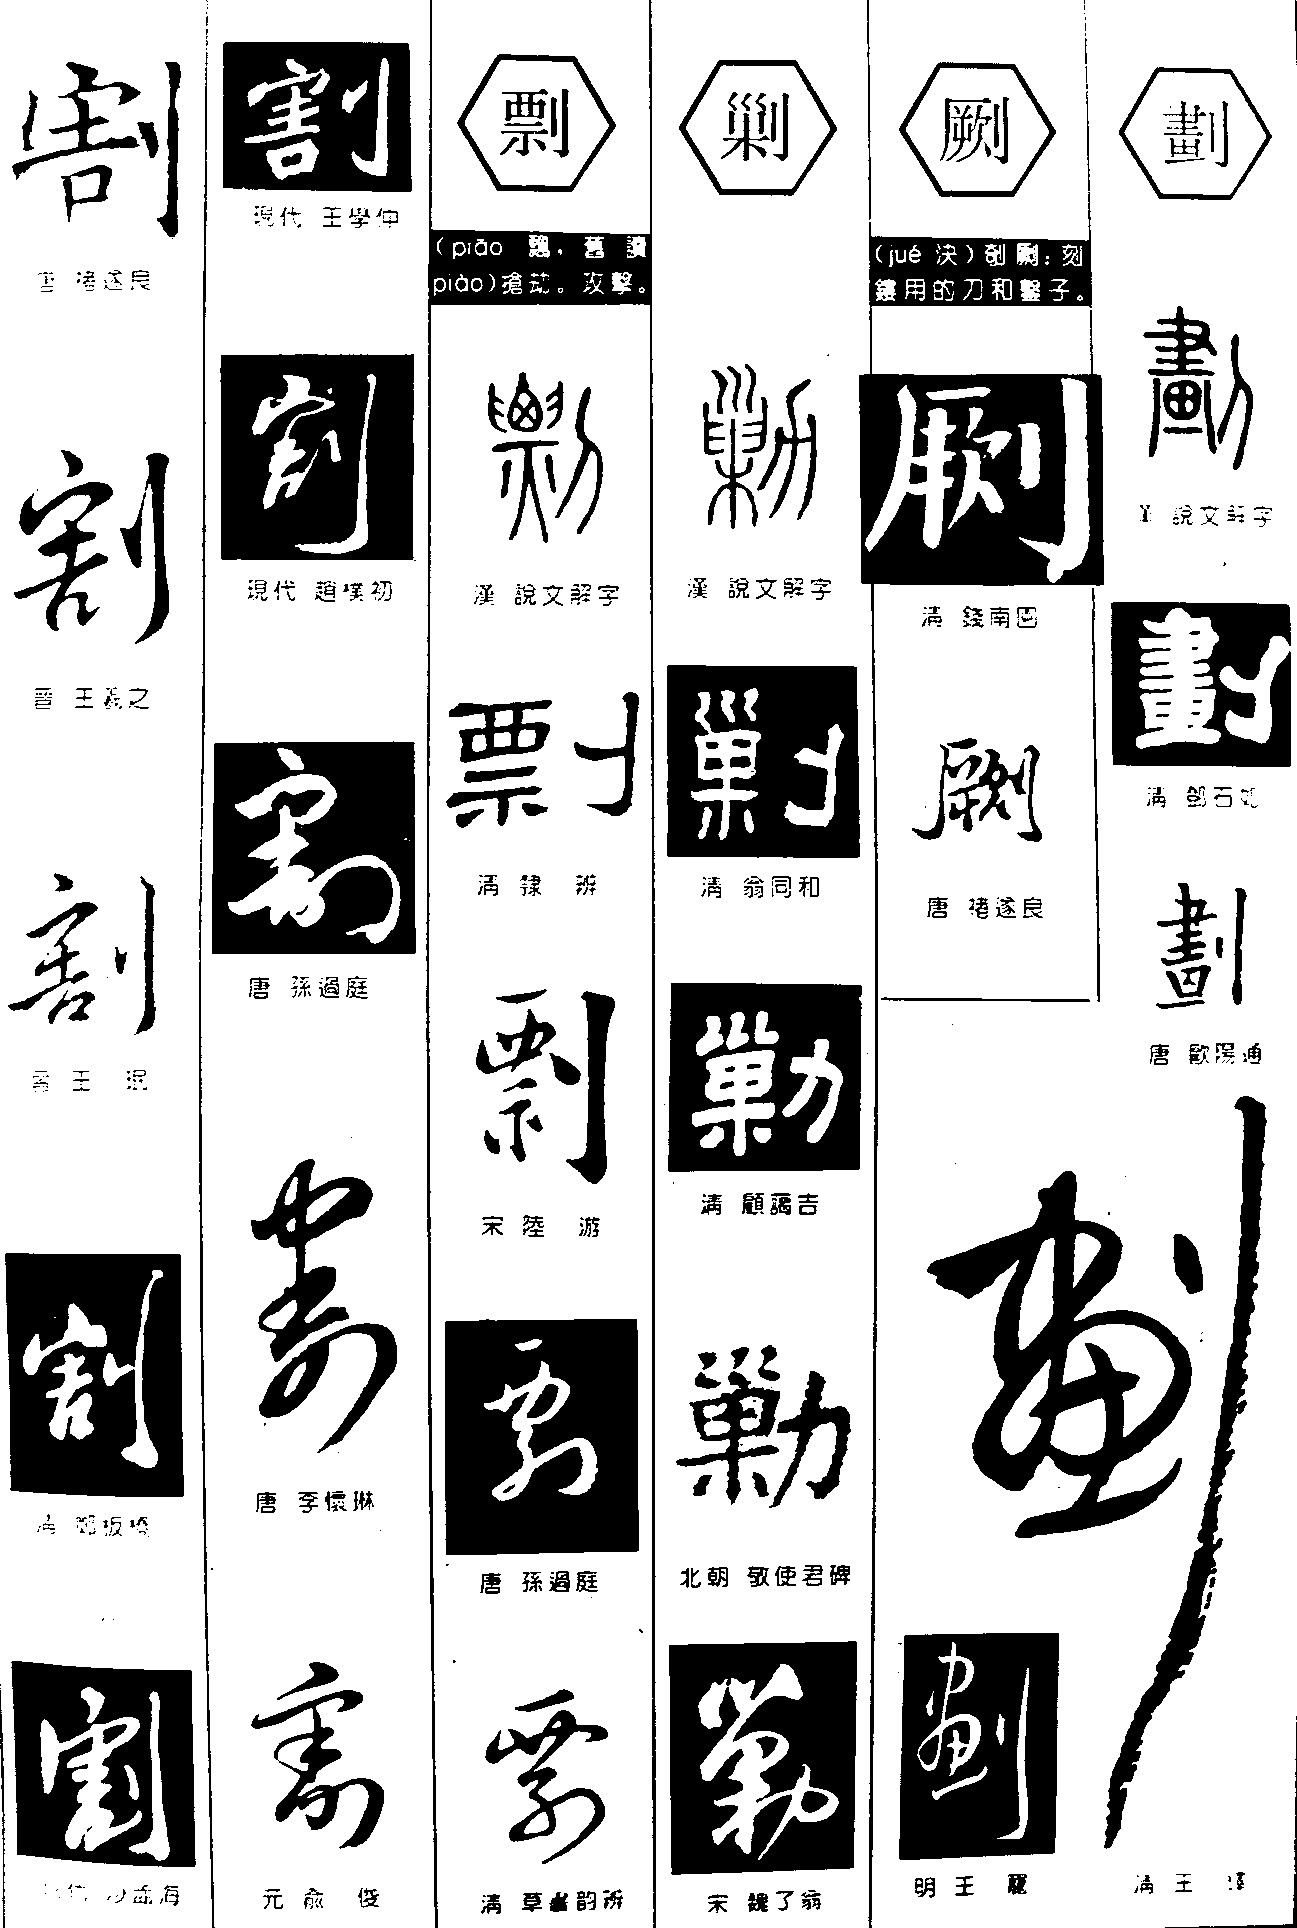 劃
漢 說文解字
清 鄧石如
唐 歐陽通
清 王 鐸
劂
(jué 決) 剞劂：刻
鏤用的刀和鑿子。
清 錢南園
唐 褚遂良
明 王 寵
剿
漢 說文解字
清 翁同和
清 顧藹吉
北朝 敬使君碑
宋 魏了翁
剽
(piāo 飄，舊讀
piào)搶劫。攻擊。
漢 說文解字
清 隸 辨
宋 陸 游
唐 孫過庭
清 草書韵辨
割
現代 王學仲
割
現代 趙樸初
割
唐 孫過庭
割
唐 李懷琳
割
元 俞 俊
割
唐 褚遂良
割
晉 王羲之
割
晉 王 珉
割
清 鄭板橋
割
現代 沙孟海